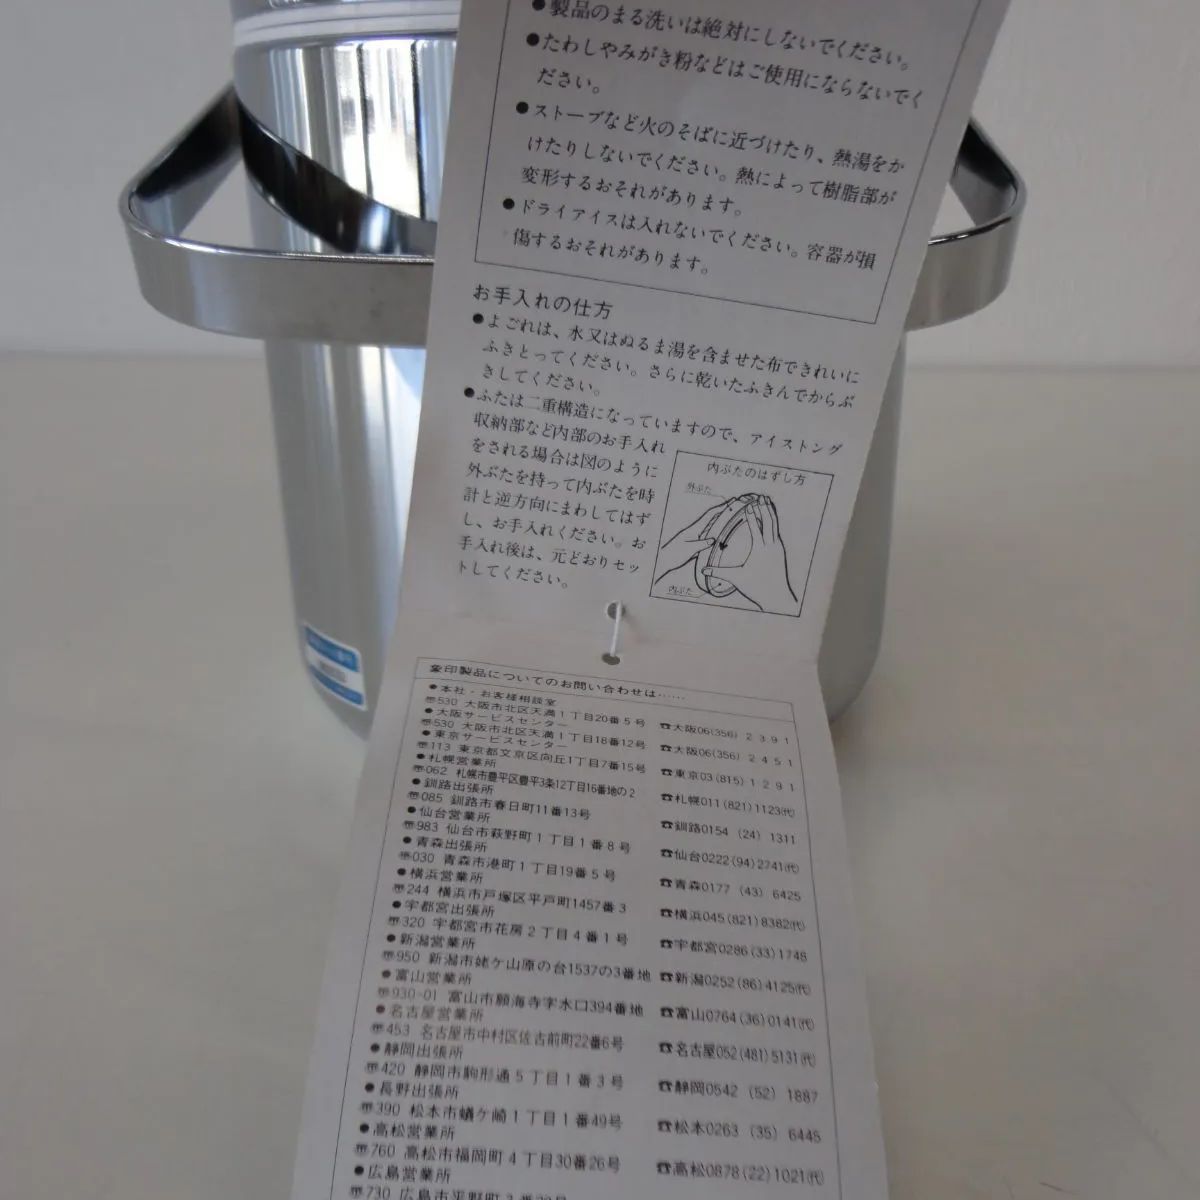 ●製品のまる洗いは絶対にしないでください。
●たわしやみがき粉などはご使用にならないでく
ださい。
●ストーブなど火のそばに近づけたり、熱湯をか
けたりしないでください。熱によって樹脂部が
変形するおそれがあります。
●ドライアイスは入れないでください。容器が損
傷するおそれがあります。
お手入れの仕方
●よごれは、水又はぬるま湯を含ませた布できれいに
ふきとってください。さらに乾いたふきんでからぶ
きしてください。
●ふたは二重構造になっていますので、アイストング
収納部など内部のお手入れ
をされる場合は図のように
外ぶたを持って内ぶたを時
計と逆方向にまわしてはず
し、お手入れください。お
手入れ後は、元どおりセッ
トしてください。
内ぶたのはずし方
外ぶた
内ぶた
象印製品についてのお問い合わせは……
●本社・お客様相談室
〠530 大阪市北区天満1丁目20番5号 ☎大阪06(356)2391
●大阪サービスセンター
〠530 大阪市北区天満1丁目18番12号 ☎大阪06(356)2451
●東京サービスセンター
〠113 東京都文京区向丘1丁目7番15号 ☎東京03(815)1291
●札幌営業所
〠062 札幌市豊平区豊平3条12丁目16番地の2 ☎札幌011(821)1123㈹
●釧路出張所
〠085 釧路市春日町11番13号 ☎釧路0154(24)1311
●仙台営業所
〠983 仙台市萩野町1丁目1番8号 ☎仙台0222(94)2741㈹
●青森出張所
〠030 青森市港町1丁目19番5号 ☎青森0177(43)6425
●横浜営業所
〠244 横浜市戸塚区平戸町1457番3 ☎横浜045(821)8382㈹
●宇都宮出張所
〠320 宇都宮市花房2丁目4番1号 ☎宇都宮0286(33)1748
●新潟営業所
〠950 新潟市姥ケ山原の台1537の3番地 ☎新潟0252(86)4125㈹
●富山営業所
〠930-01 富山市願海寺字水口394番地 ☎富山0764(36)0141㈹
●名古屋営業所
〠453 名古屋市中村区佐古前町22番6号 ☎名古屋052(481)5131㈹
●静岡出張所
〠420 静岡市駒形通5丁目1番3号 ☎静岡0542(52)1887
●長野出張所
〠390 松本市蟻ケ崎1丁目1番49号 ☎松本0263(35)6445
●高松営業所
〠760 高松市福岡町4丁目30番26号 ☎高松0878(22)1021㈹
●広島営業所
〠730 広島市平野町